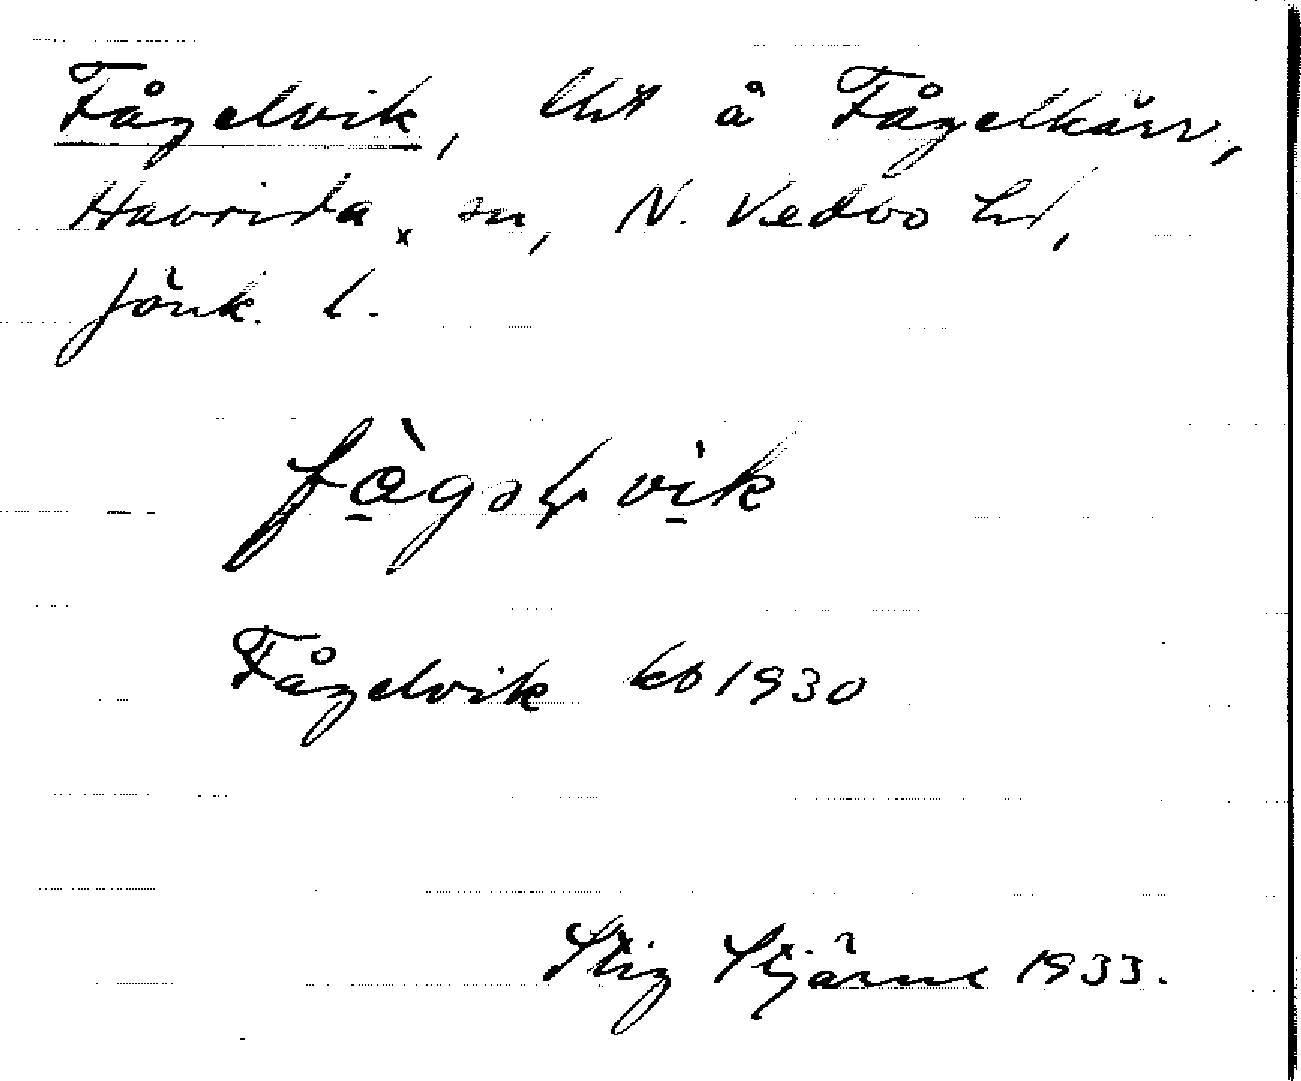 Fågelvik, lht å Fågelkärr,
Haurida sn, N. Vedbo hd,
Jönk. l.
Fågelvik kb 1930
Stig Stjärne 1933.